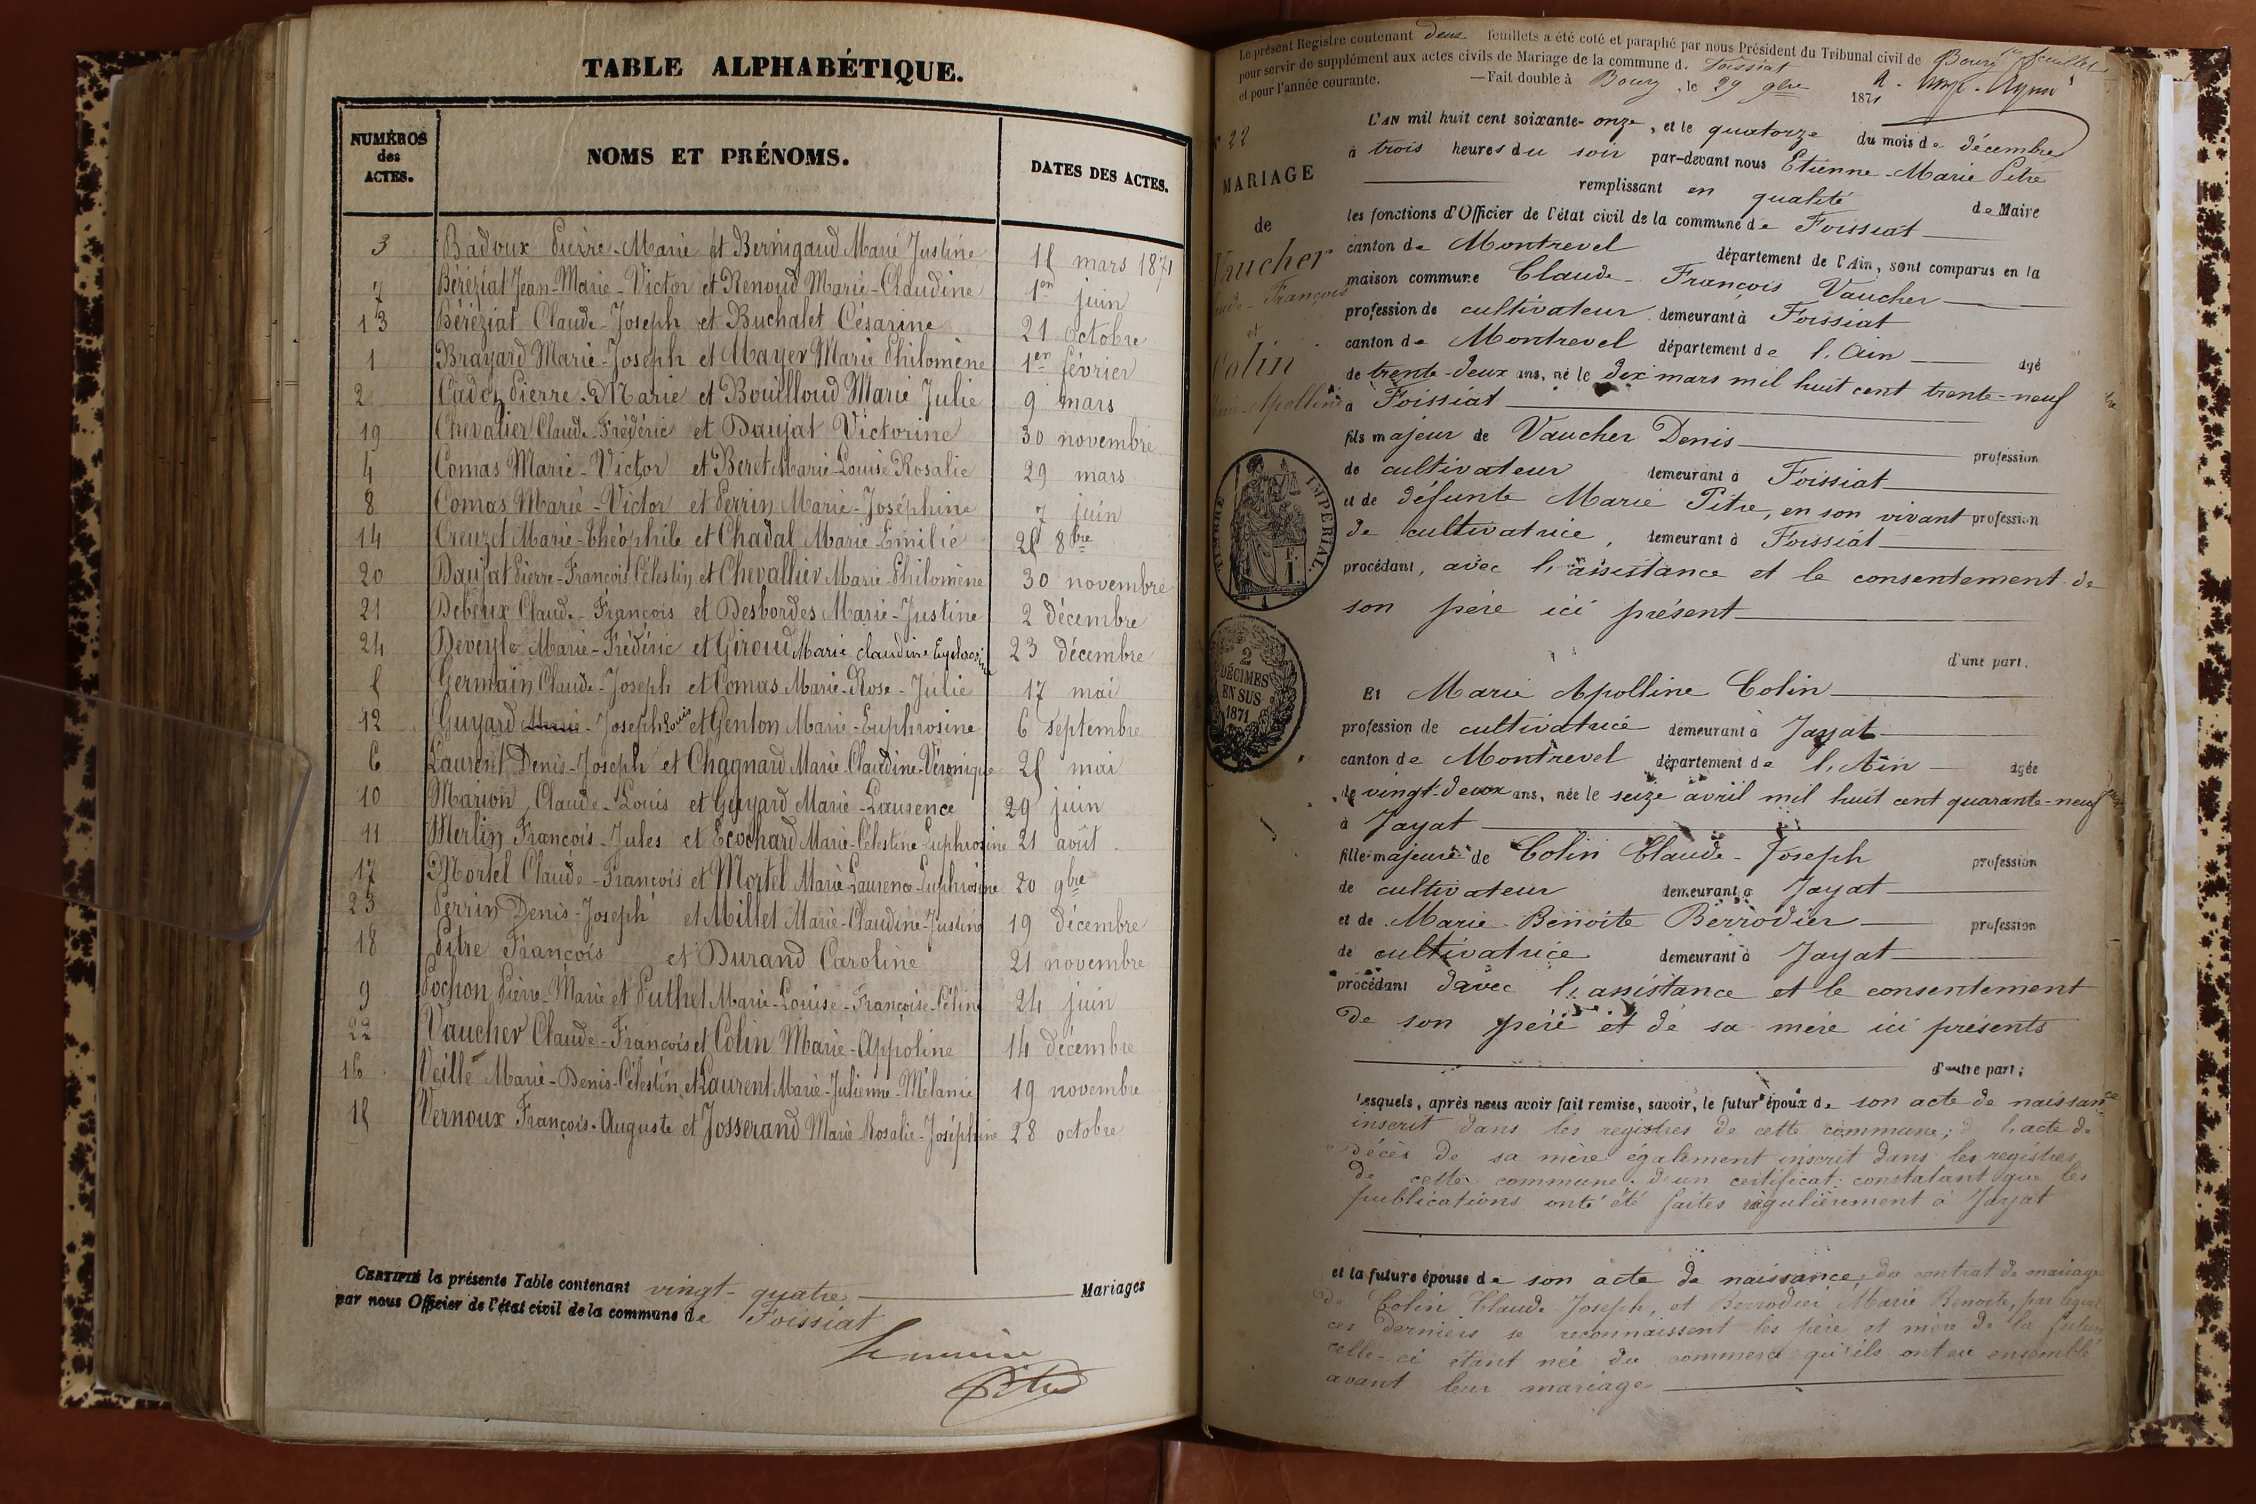 TABLE ALPHABÉTIQUE.
NUMÉROS des ACTES.
NOMS ET PRÉNOMS.
DATES DES ACTES.
3 Badoux Pierre-Marie et Bernigaud Marie Justine 15 mars 1871
7 Béréziat Jean-Marie-Victor et Renoud Marie-Claudine 1er juin
13 Béréziat Claude-Joseph et Buchalet Césarine 21 octobre
1 Brayard Marie-Joseph et Mayer Marie Philomène 1er février
2 Cadoz Pierre-Marie et Bouilloud Marie Julie 9 mars
19 Chevalier Claude-Frédéric et Daujat Victorine 30 novembre
4 Comas Marie-Victor et Beret Marie-Louise Rosalie 29 mars
8 Comas Marie-Victor et Perrin Marie-Joséphine 7 juin
14 Creuzet Marie-Théophile et Chadal Marie-Emilie 25 8bre
20 Daujat Pierre-François Célestin et Chevallier Marie Philomène 30 novembre
21 Debeux Claude-François et Desbordes Marie-Justine 2 décembre
24 Deveyle Marie-Frédéric et Giroud Marie claudine 23 décembre
5 Germain Claude-Joseph et Comas Marie-Rose-Julie 17 mai
12 Guyard Marie-Joseph Louis et Genton Marie-Euphrosine 6 septembre
6 Laurent Denis-Joseph et Chagnard Marie Claudine-Véronique 25 mai
10 Marion Claude-Louis et Guyard Marie-Laurence 29 juin
11 Merlin François-Jules et Ecochard Marie-Célestine-Euphrosine 21 août
17 Mortel Claude-François et Mortel Marie-Laurence-Euphrosine 20 9bre
23 Perrin Denis-Joseph et Millet Marie-Claudine-Justine 19 décembre
18 Pitre François et Durand Caroline 21 novembre
9 Pochon Pierre-Marie et Puthet Marie-Louise-Françoise-Céline 24 juin
22 Vaucher Claude-François et Colin Marie-Appoline 14 décembre
16 Veille Marie-Denis-Célestin et Laurent Marie-Julienne-Mélanie 19 novembre
15 Vernoux François-Auguste et Josserand Marie Rosalie-Joséphine 28 octobre
CERTIFIÉ la présente Table contenant vingt-quatre Mariages
par nous Officier de l'état civil de la commune de Foissiat
Le maire
Pitre
Le présent Registre contenant deux feuillets a été coté et paraphé par nous Président du Tribunal civil de Bourg
pour servir de supplément aux actes civils de Mariage de la commune d. Foissiat
et pour l'année courante. —Fait double à Bourg, le 29 9bre 1871
1er feuillet
N° 22
MARIAGE
de
Vaucher
Claude-François
et
Colin
Marie-Apolline
TIMBRE IMPERIAL
2 DÉCIMES EN SUS 1871
L'AN mil huit cent soixante-onze, et le quatorze du mois de décembre
à trois heures du soir par-devant nous Etienne-Marie Pitre
remplissant en qualité de Maire
les fonctions d'Officier de l'état civil de la commune de Foissiat
canton de Montrevel département de l'Ain, sont comparus en la
maison commune Claude-François Vaucher
profession de cultivateur demeurant à Foissiat
canton de Montrevel département de l'Ain âgé
de trente-deux ans, né le dix mars mil huit cent trente-neuf
à Foissiat
fils majeur de Vaucher Denis profession
de cultivateur demeurant à Foissiat
et de défunte Marie Pitre, en son vivant profession
de cultivatrice, demeurant à Foissiat
procédant, avec l'assistance et le consentement de
son père ici présent
d'une part.
Et Marie Apolline Colin
profession de cultivatrice demeurant à Jayat
canton de Montrevel département de l'Ain âgée
de vingt-deux ans, née le seize avril mil huit cent quarante-neuf
à Jayat
fille majeure de Colin Claude-Joseph profession
de cultivateur demeurant à Jayat
et de Marie-Benoite Berrodier profession
de cultivatrice demeurant à Jayat
procédant d'avec l'assistance et le consentement
de son père et de sa mère ici présents
d'autre part;
Lesquels, après nous avoir fait remise, savoir, le futur époux de son acte de naissance
inscrit dans les registres de cette commune; d l'acte de
décès de sa mère également inscrit dans les registres
de cette commune, d'un certificat constatant que les
publications ont été faites régulièrement à Jayat
et la future épouse de son acte de naissance, du contrat de mariage
de Colin Claude Joseph, et Berrodier Marie Benoite, par lequel
ces derniers se reconnaissent les père et mère de la future
celle-ci étant née du commerce qu'ils ont eu ensemble
avant leur mariage